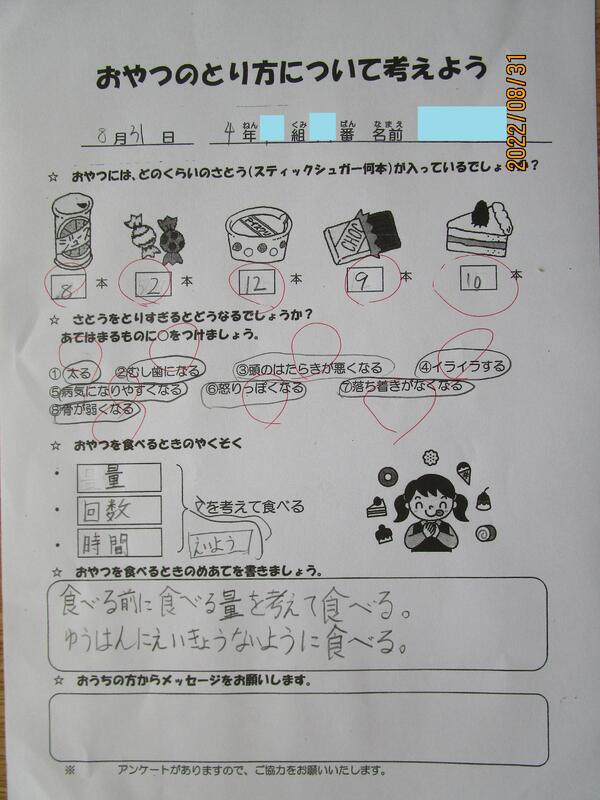 おやつのとり方について考えよう
2022/08/31
8月31日 4年 組 番 名前
ねん くみ ばん なまえ
☆ おやつには、どのくらいのさとう(スティックシュガー何本)が入っているでしょ?
PEACH CHOC
8本 2本 12本 9本 10本
☆ さとうをとりすぎるとどうなるでしょうか?
あてはまるものに○をつけましょう。
①太る ②むし歯になる ③頭のはたらきが悪くなる ④イライラする
⑤病気になりやすくなる ⑥怒りっぽくなる ⑦落ち着きがなくなる
⑧骨が弱くなる
☆ おやつを食べるときのやくそく
・ 量
・ 回数 を考えて食べる
・ 時間 えいよう
☆ おやつを食べるときのめあてを書きましょう。
食べる前に食べる量を考えて食べる。
ゆうはんにえいきょうないように食べる。
☆ おうちの方からメッセージをお願いします。
※ アンケートがありますので、ご協力をお願いいたします。